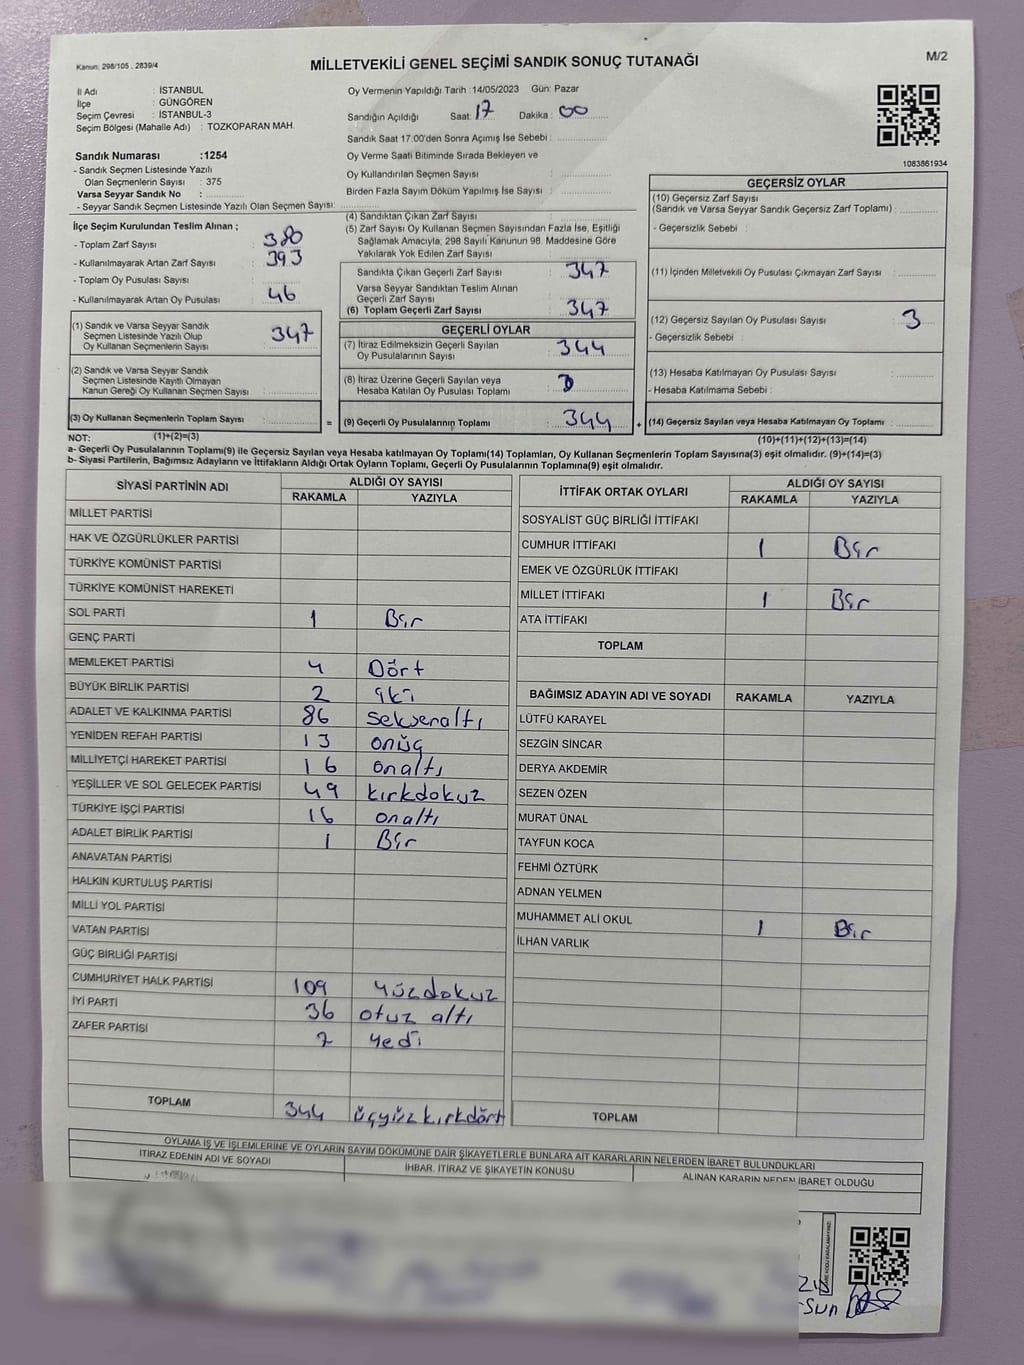 Kanun: 298/105 , 2839/4
MİLLETVEKİLİ GENEL SEÇİMİ SANDIK SONUÇ TUTANAĞI
M/2
İl Adı : İSTANBUL
İlçe : GÜNGÖREN
Seçim Çevresi : İSTANBUL-3
Seçim Bölgesi (Mahalle Adı) : TOZKOPARAN MAH.
Oy Vermenin Yapıldığı Tarih :14/05/2023 Gün: Pazar
Sandığın Açıldığı Saat: 17 Dakika : 00
Sandık Saat 17.00'den Sonra Açılmış İse Sebebi :
Oy Verme Saati Bitiminde Sırada Bekleyen ve
Oy Kullandırılan Seçmen Sayısı :
Birden Fazla Sayım Döküm Yapılmış İse Sayısı :
1083861934
Sandık Numarası :1254
- Sandık Seçmen Listesinde Yazılı
Olan Seçmenlerin Sayısı : 375
Varsa Seyyar Sandık No :
- Seyyar Sandık Seçmen Listesinde Yazılı Olan Seçmen Sayısı:
İlçe Seçim Kurulundan Teslim Alınan ;
- Toplam Zarf Sayısı : 380
- Kullanılmayarak Artan Zarf Sayısı : 393
- Toplam Oy Pusulası Sayısı :
- Kullanılmayarak Artan Oy Pusulası : 46
(1) Sandık ve Varsa Seyyar Sandık
Seçmen Listesinde Yazılı Olup
Oy Kullanan Seçmenlerin Sayısı : 347
(2) Sandık ve Varsa Seyyar Sandık
Seçmen Listesinde Kayıtlı Olmayan
Kanun Gereği Oy Kullanan Seçmen Sayısı :
(3) Oy Kullanan Seçmenlerin Toplam Sayısı :
(1)+(2)=(3)
(4) Sandıktan Çıkan Zarf Sayısı :
(5) Zarf Sayısı Oy Kullanan Seçmen Sayısından Fazla İse, Eşitliği
Sağlamak Amacıyla; 298 Sayılı Kanunun 98. Maddesine Göre
Yakılarak Yok Edilen Zarf Sayısı :
Sandıkta Çıkan Geçerli Zarf Sayısı : 347
Varsa Seyyar Sandıktan Teslim Alınan
Geçerli Zarf Sayısı :
(6) Toplam Geçerli Zarf Sayısı : 347
GEÇERLİ OYLAR
(7) İtiraz Edilmeksizin Geçerli Sayılan
Oy Pusulalarının Sayısı : 344
(8) İtiraz Üzerine Geçerli Sayılan veya
Hesaba Katılan Oy Pusulası Toplamı :
= (9) Geçerli Oy Pusulalarının Toplamı : 344 +
GEÇERSİZ OYLAR
(10) Geçersiz Zarf Sayısı
(Sandık ve Varsa Seyyar Sandık Geçersiz Zarf Toplamı) :
- Geçersizlik Sebebi :
(11) İçinden Milletvekili Oy Pusulası Çıkmayan Zarf Sayısı :
(12) Geçersiz Sayılan Oy Pusulası Sayısı : 3
- Geçersizlik Sebebi :
(13) Hesaba Katılmayan Oy Pusulası Sayısı :
- Hesaba Katılmama Sebebi :
(14) Geçersiz Sayılan veya Hesaba Katılmayan Oy Toplamı :
(10)+(11)+(12)+(13)=(14)
NOT:
a- Geçerli Oy Pusulalarının Toplamı(9) ile Geçersiz Sayılan veya Hesaba katılmayan Oy Toplamı(14) Toplamları, Oy Kullanan Seçmenlerin Toplam Sayısına(3) eşit olmalıdır. (9)+(14)=(3)
b- Siyasi Partilerin, Bağımsız Adayların ve İttifakların Aldığı Ortak Oyların Toplamı, Geçerli Oy Pusulalarının Toplamına(9) eşit olmalıdır.
SİYASİ PARTİNİN ADI ALDIĞI OY SAYISI
RAKAMLA YAZIYLA
MİLLET PARTİSİ
HAK VE ÖZGÜRLÜKLER PARTİSİ
TÜRKİYE KOMÜNİST PARTİSİ
TÜRKİYE KOMÜNİST HAREKETİ
SOL PARTİ 1 Bir
GENÇ PARTİ
MEMLEKET PARTİSİ 4 Dört
BÜYÜK BİRLİK PARTİSİ 2 iki
ADALET VE KALKINMA PARTİSİ 86 seksenaltı
YENİDEN REFAH PARTİSİ 13 onüç
MİLLİYETÇİ HAREKET PARTİSİ 16 onaltı
YEŞİLLER VE SOL GELECEK PARTİSİ 49 kırkdokuz
TÜRKİYE İŞÇİ PARTİSİ 16 onaltı
ADALET BİRLİK PARTİSİ 1 Bir
ANAVATAN PARTİSİ
HALKIN KURTULUŞ PARTİSİ
MİLLİ YOL PARTİSİ
VATAN PARTİSİ
GÜÇ BİRLİĞİ PARTİSİ
CUMHURİYET HALK PARTİSİ 109 yüzdokuz
İYİ PARTİ 36 otuz altı
ZAFER PARTİSİ 7 yedi
TOPLAM 344 üçyüzkırkdört
İTTİFAK ORTAK OYLARI ALDIĞI OY SAYISI
RAKAMLA YAZIYLA
SOSYALİST GÜÇ BİRLİĞİ İTTİFAKI
CUMHUR İTTİFAKI 1 Bir
EMEK VE ÖZGÜRLÜK İTTİFAKI
MİLLET İTTİFAKI 1 Bir
ATA İTTİFAKI
TOPLAM
BAĞIMSIZ ADAYIN ADI VE SOYADI RAKAMLA YAZIYLA
LÜTFÜ KARAYEL
SEZGİN SİNCAR
DERYA AKDEMİR
SEZEN ÖZEN
MURAT ÜNAL
TAYFUN KOCA
FEHMİ ÖZTÜRK
ADNAN YELMEN
MUHAMMET ALİ OKUL 1 Bir
İLHAN VARLIK
TOPLAM
OYLAMA İŞ VE İŞLEMLERİNE VE OYLARIN SAYIM DÖKÜMÜNE DAİR ŞİKAYETLERLE BUNLARA AİT KARARLARIN NELERDEN İBARET BULUNDUKLARI
İTİRAZ EDENİN ADI VE SOYADI İHBAR, İTİRAZ VE ŞİKAYETİN KONUSU ALINAN KARARIN NEDEN İBARET OLDUĞU